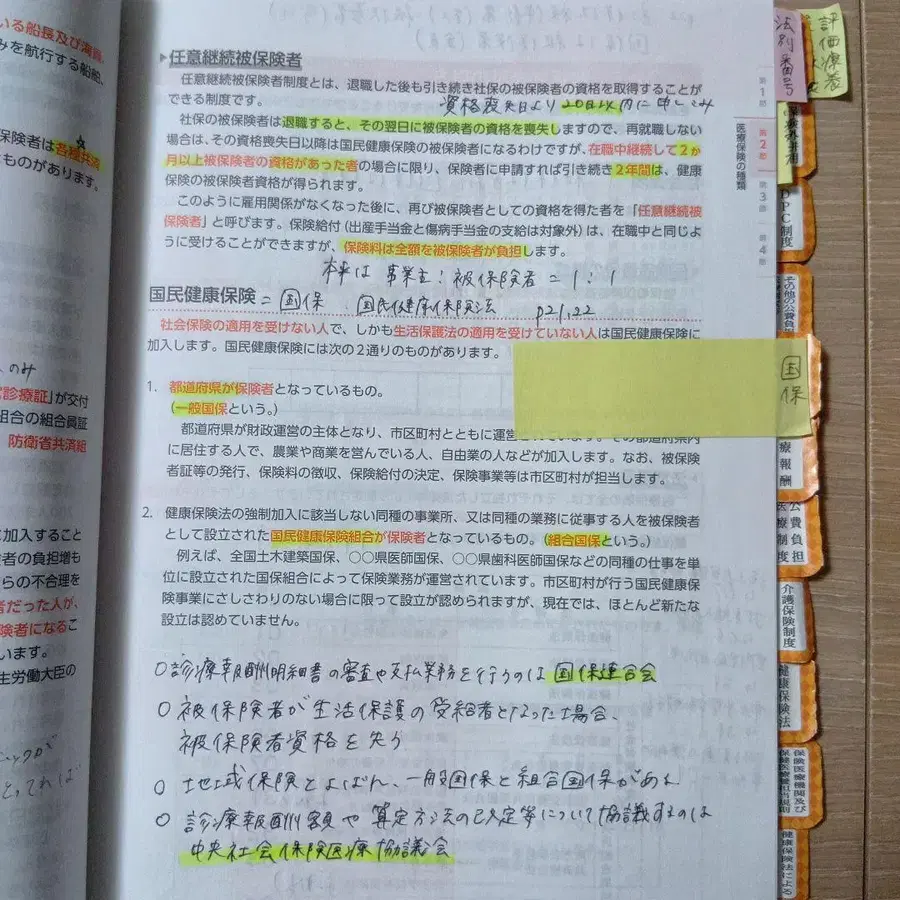 いる船長及び海員
みを航行する船舶、
保険者は各種共済
ものがあります。
のみ
診療証」が交付
組合の組合員証
防衛省共済組
に加入すること
者の負担増も
らの不合理を
者だった人が、
保険者になるこ
います。
生労働大臣の
とってれば
▶任意継続被保険者
任意継続被保険者制度とは、退職した後も引き続き社保の被保険者の資格を取得することが
できる制度です。
資格喪失日より20日以内に申し込み
社保の被保険者は退職すると、その翌日に被保険者の資格を喪失しますので、再就職しない
場合は、その資格喪失日以降は国民健康保険の被保険者になるわけですが、在職中継続して2か
月以上被保険者の資格があった者の場合に限り、保険者に申請すれば引き続き2年間は、健康
保険の被保険者資格が得られます。
このように雇用関係がなくなった後に、再び被保険者としての資格を得た者を「任意継続被
保険者」と呼びます。保険給付（出産手当金と傷病手当金の支給は対象外）は、在職中と同じよ
うに受けることができますが、保険料は全額を被保険者が負担します。
本来は 事業主：被保険者 = 1：1
国民健康保険 = 国保 国民健康保険法 p21,22
社会保険の適用を受けない人で、しかも生活保護法の適用を受けていない人は国民健康保険に
加入します。国民健康保険には次の2通りのものがあります。
1. 都道府県が保険者となっているもの。
（一般国保という。）
都道府県が財政運営の主体となり、市区町村とともに運営されています。その都道府県内
に居住する人で、農業や商業を営んでいる人、自由業の人などが加入します。なお、被保険
者証等の発行、保険料の徴収、保険給付の決定、保険事業等は市区町村が担当します。
2. 健康保険法の強制加入に該当しない同種の事業所、又は同種の業務に従事する人を被保険者
として設立された国民健康保険組合が保険者となっているもの。（組合国保という。）
例えば、全国土木建築国保、〇〇県医師国保、〇〇県歯科医師国保などの同種の仕事を単
位に設立された国保組合によって保険業務が運営されています。市区町村が行う国民健康保
険事業にさしさわりのない場合に限って設立が認められますが、現在では、ほとんど新たな
設立は認めていません。
○診療報酬明細書の審査や支払業務を行うのは 国保連合会
○被保険者が生活保護の受給者となった場合、
被保険者資格を失う
○地域保険とよばれ、一般国保と組合国保がある
○診療報酬額や算定方法の改定等について協議するのは
中央社会保険医療協議会
第1章
第2章
医療保険の種類
第3章
第4章
法別番号
評価療養
DPC制度
その他の公費負担
国保
療報酬
公費負担
医療制度
介護保険制度
健康保険法
保険医療機関及び
保険医療養担当規則
健康保険法による